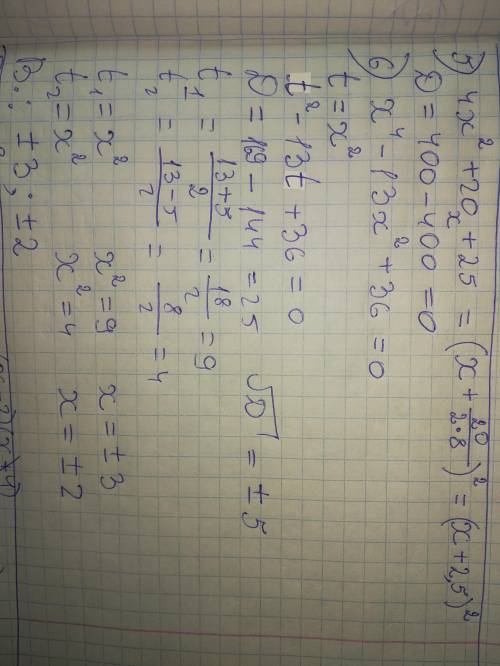 5) 4x² + 20x + 25 = (x + 20/(2·8))² = (x + 2,5)²
D = 400 - 400 = 0
6) x⁴ - 13x² + 36 = 0
t = x²
t² - 13t + 36 = 0
D = 169 - 144 = 25 √D = ±5
t₁ = (13+5)/2 = 18/2 = 9
t₂ = (13-5)/2 = 8/2 = 4
t₁ = x² x² = 9 x = ±3
t₂ = x² x² = 4 x = ±2
В.: ±3; ±2